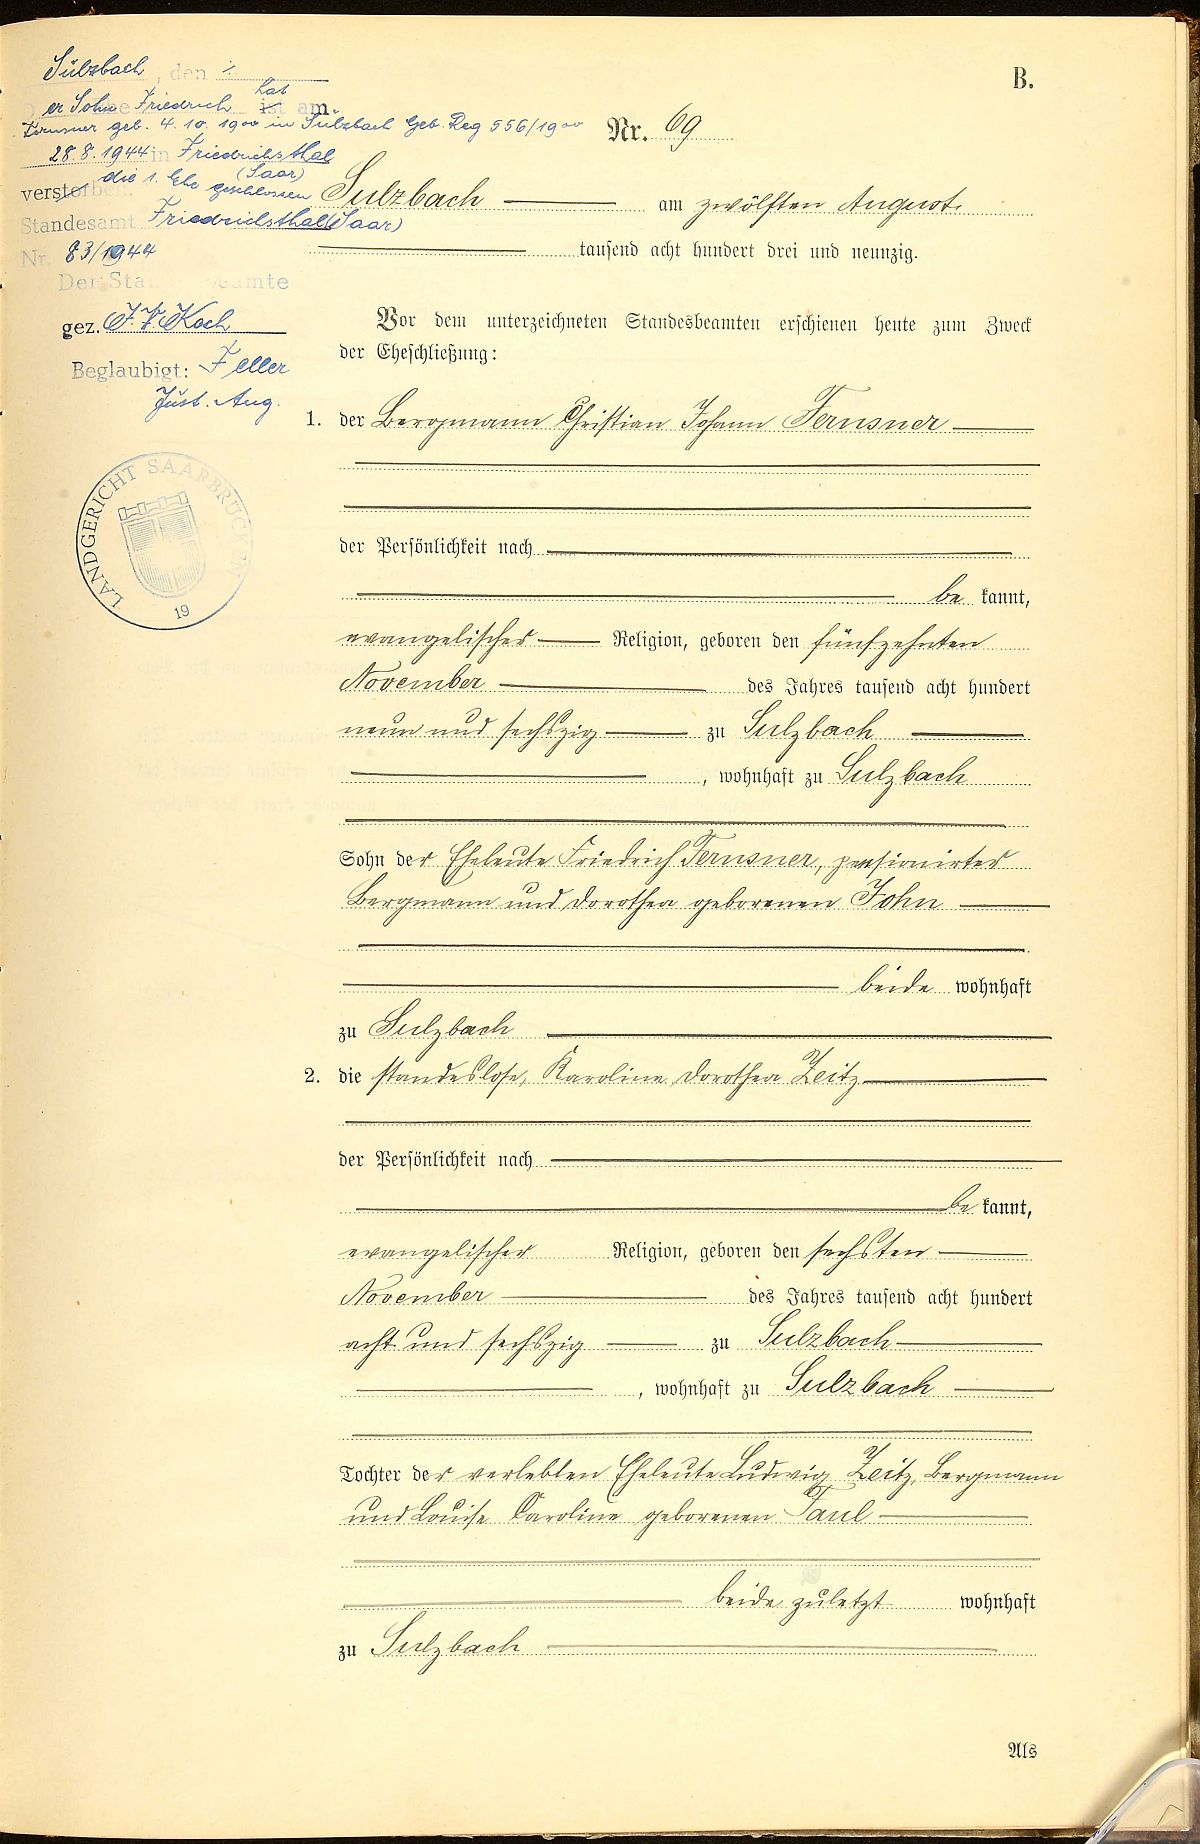 B.
Sulzbach, den ./.
er Sohn Friedrich hat ist am
Fernsner geb. 4. 10. 1900 in Sulzbach Geb. Reg 556/1900
28. 8. 1944 in Friedrichsthal
(Saar)
verstorben die 1. Ehe geschlossen
Standesamt Friedrichsthal (Saar)
Nr. 83/1944
Der Standesbeamte
gez. J. V. Koch
Beglaubigt: Feller
Just. Ang.
LANDGERICHT SAARBRÜCKEN
19
Nr. 69
Sulzbach am zwölften August
tausend acht hundert drei und neunzig.
Vor dem unterzeichneten Standesbeamten erschienen heute zum Zweck
der Eheschließung:
1. der Bergmann Christian Johann Fernsner
der Persönlichkeit nach
be kannt,
evangelischer Religion, geboren den fünfzehnten
November des Jahres tausend acht hundert
neun und sechszig zu Sulzbach
, wohnhaft zu Sulzbach
Sohn der Eheleute Friedrich Fernsner, pensionirter
Bergmann und Dorothea geborenen John
beide wohnhaft
zu Sulzbach
2. die standeslose, Karoline Dorothea Zeitz
der Persönlichkeit nach
be kannt,
evangelischer Religion, geboren den sechsten
November des Jahres tausend acht hundert
acht und sechszig zu Sulzbach
, wohnhaft zu Sulzbach
Tochter der verlebten Eheleute Ludwig Zeitz, Bergmann
und Louise Caroline geborenen Faul
beide zuletzt wohnhaft
zu Sulzbach
Als